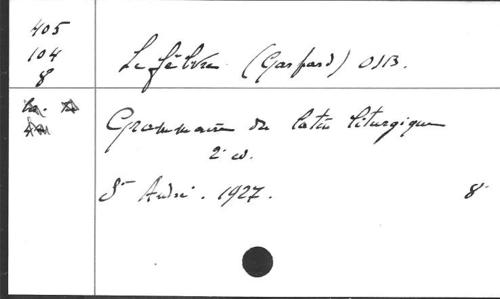 405
104
8
Lefèbvre (Gaspard) OSB.
Grammaire du latin liturgique
2e ed.
St André. 1927. 8°